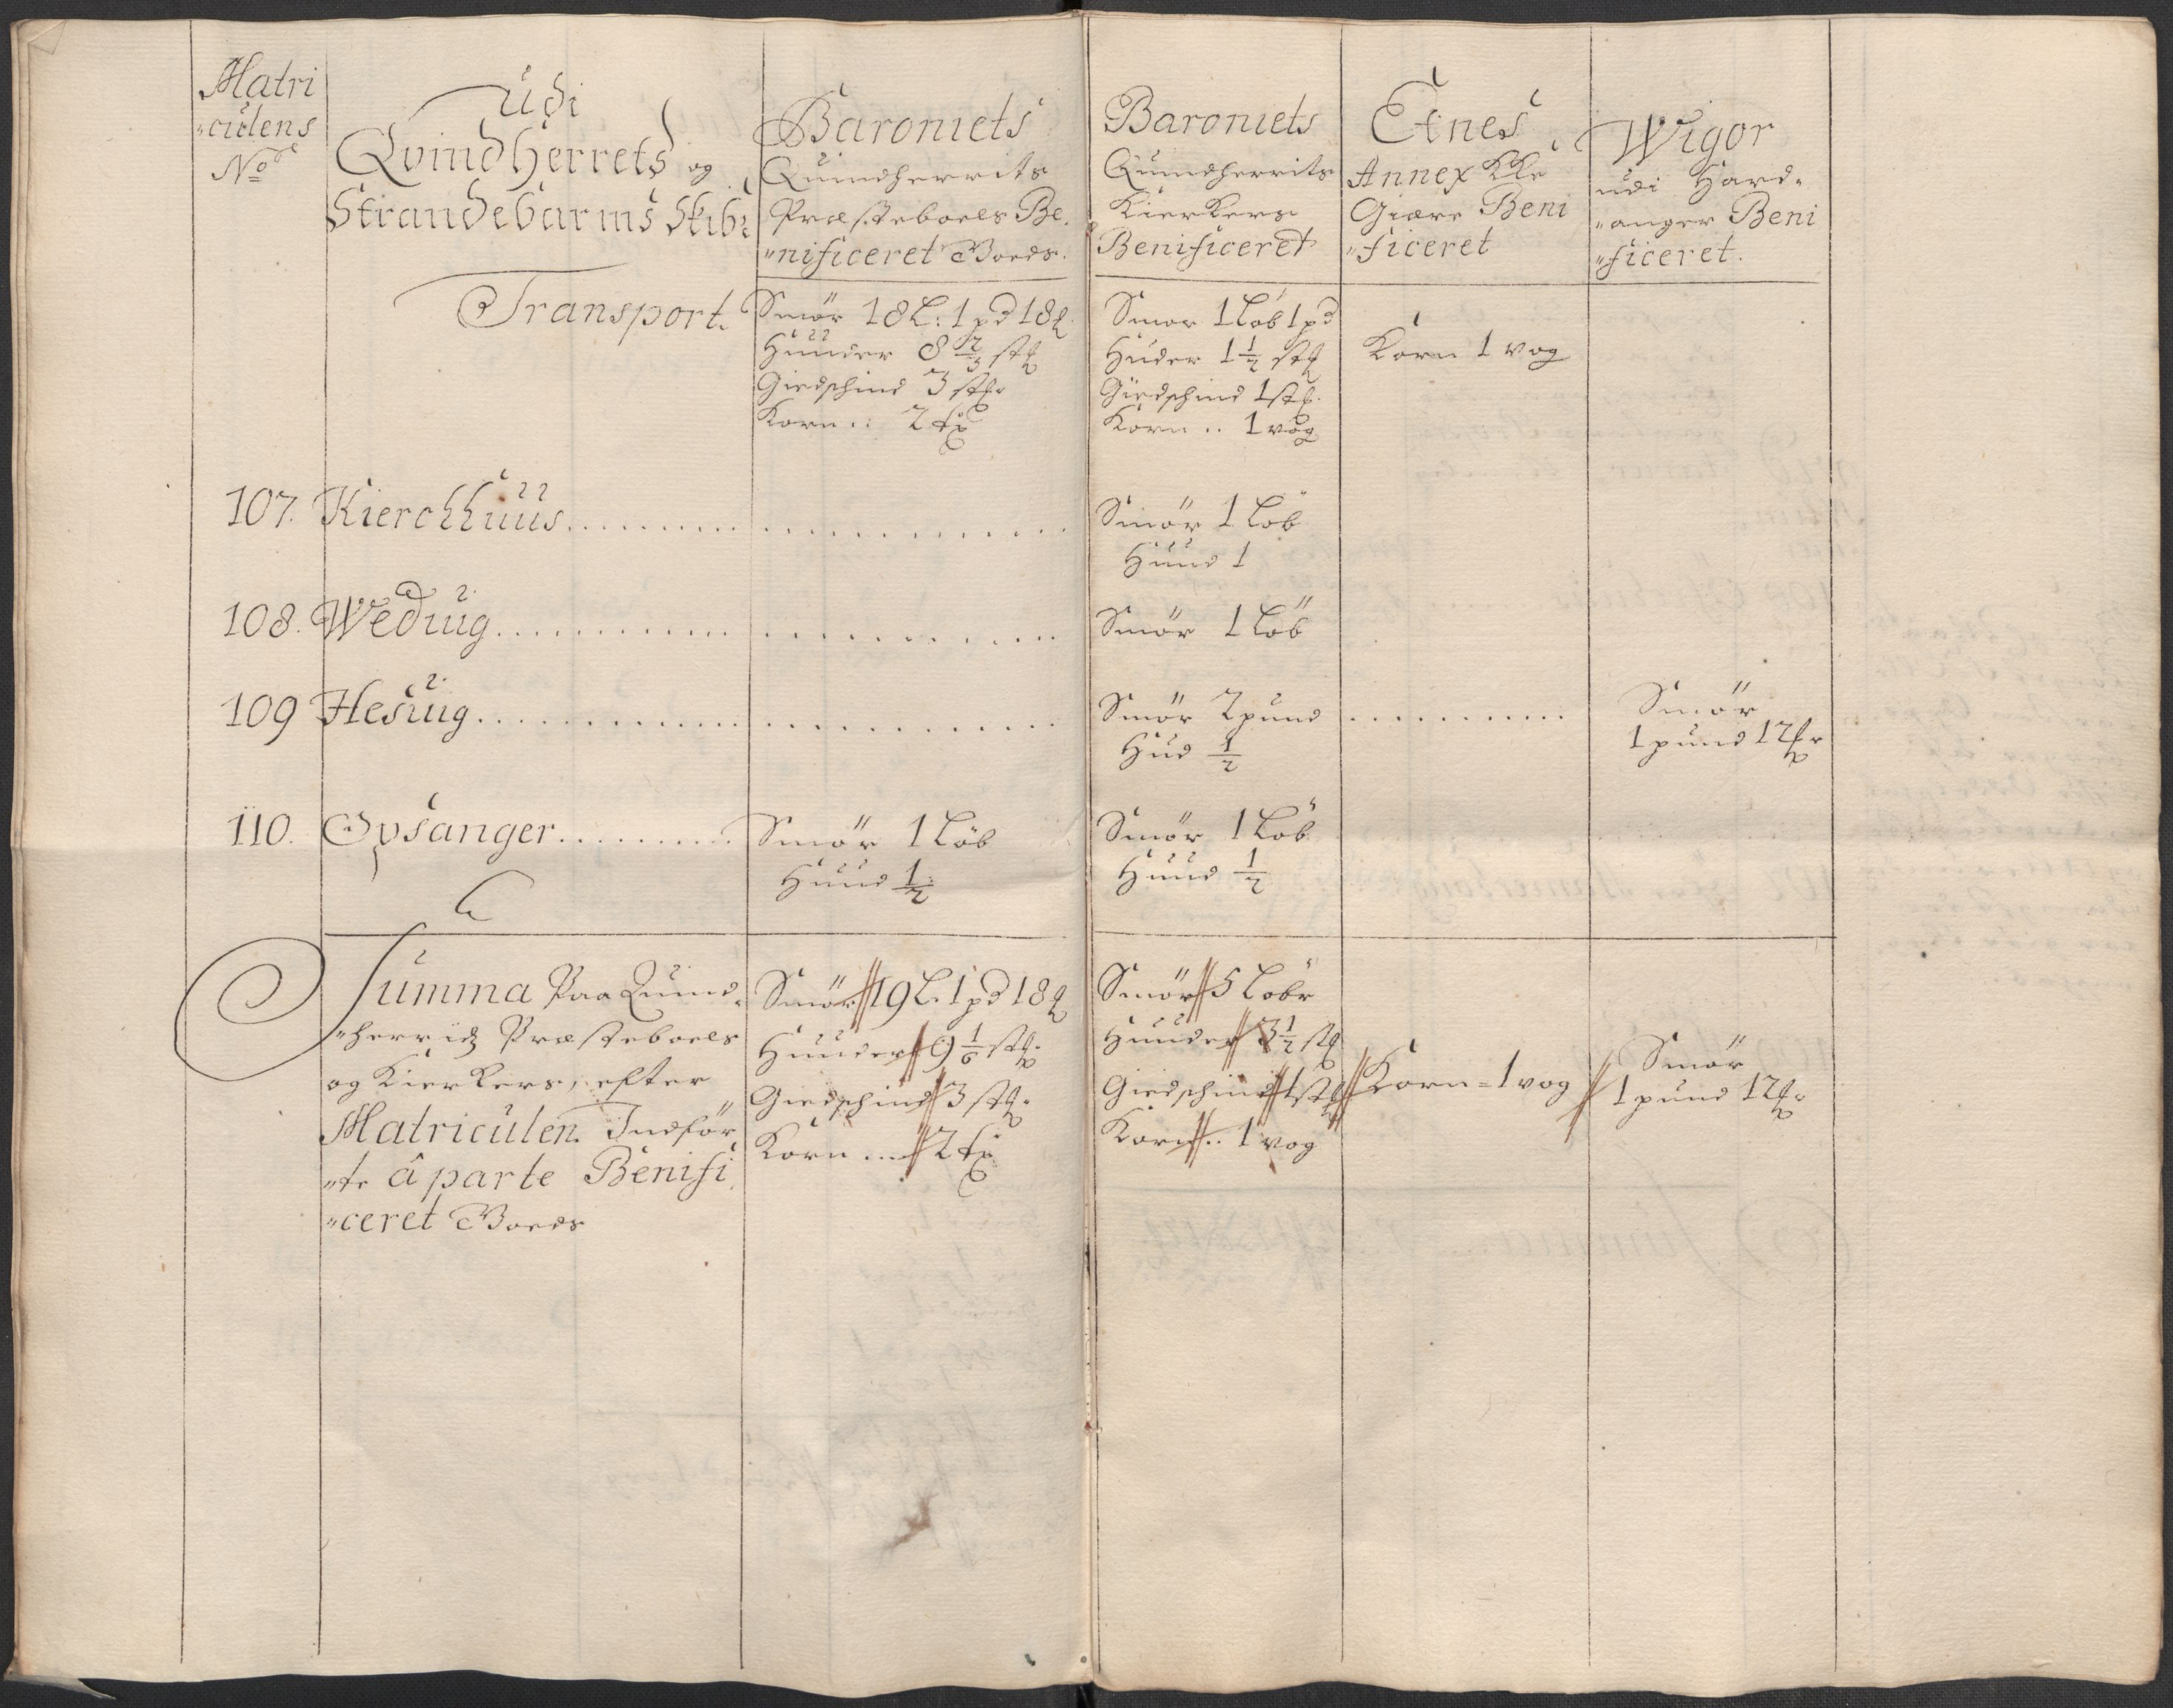 Matri
"culens
No
Udi
Qvindherrets og
Strandebarms Skib:
Baroniets
Quindherrits
Præsteboels Be,
"nificeret Goeds.
Baroniets
Quindherrits
Kierkers
Benificeret
Etnes
Annex Kle
Giære Beni
"ficeret
Wigor
udi Hard,
"anger Beni
"ficeret.
Transport.
Smør 18 L: 1 pd 18
Huuder 8 2/3 stk
Giedschind 3 stk.
Korn .: 2
Smør 1 Løb 1 pd
Huder 1 1/2 stk
Giedschind 1 stk.
Korn .. 1 vog
Korn 1 vog
107. Kierchhuus
Smør 1 Løb
Huud 1
108. Weduig
Smør 1 Løb
109 Hesuig
Smør 2 pund
Hud 1/2
Smør
1 pund 12
110. Opsanger
Smør 1 Løb
Huud 1/2
Smør 1 Løb
Huud 1/2
Summa Paa Quind,
"herridz Præsteboels
og Kierkers, efter
Matriculen Indför
"te â parte Benifi,
"ceret Goeds
Smør 19 L. 1 pd 18
Huuder 9 1/6 stk.
Giedschind 3 stk.
Korn ... 2
Smør 5 Løbr
Huuder 3 1/2 stk
Giedschind 1 stk
Korn .. 1 vog
Korn = 1 vog
Smør
1 pund 12